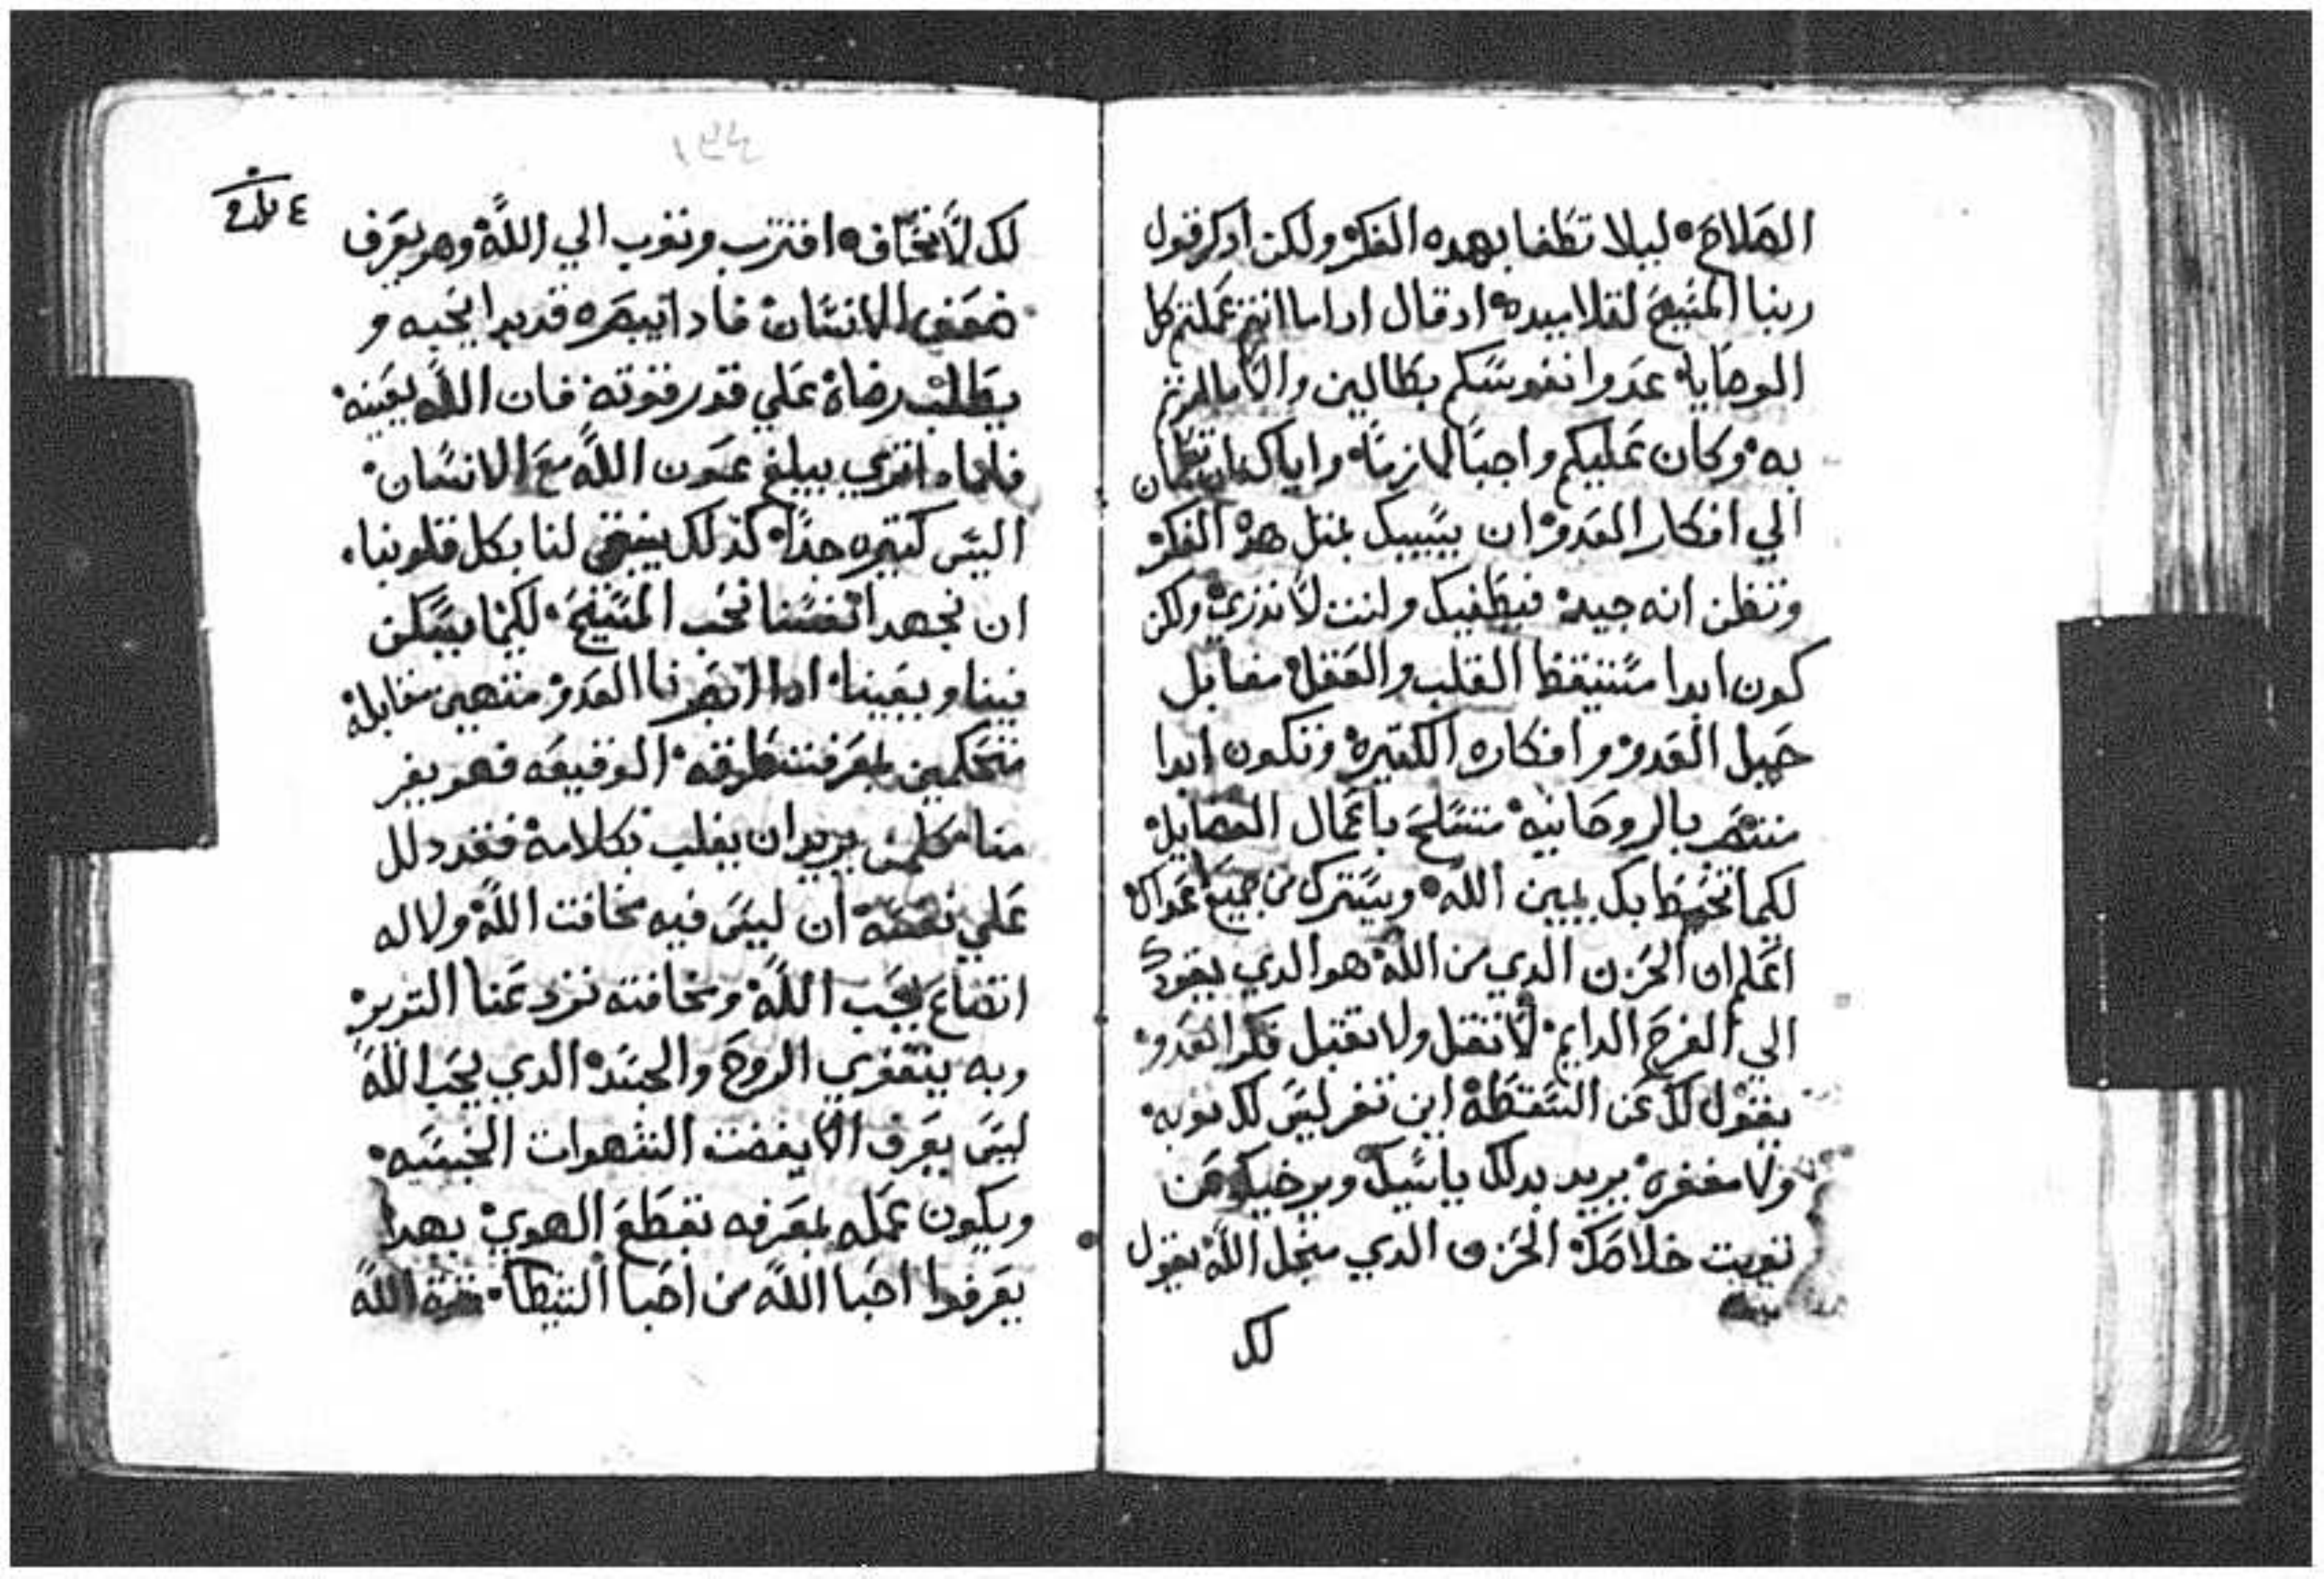 الصلاح٠ ليلا تطغا بهده الفكره ولكن ادكر قول
ربنا المسيح لتلاميده٠ اد قال ادا ما انتم عملتم كل
الوصايا٠ عدوا نفوسكم بطالين والا ما امرتم
به٠ وكان عليكم واجبا لازما٠ واياك ان تطمان
الي افكار العدو٠ ان يسبيك بمثل هده الفكره
وتظن انه جيده فيطغيك وانت لا تدري ولكن
كون ابدا مستيقظ القلب والعقل٠ مقابل
حيل العدو وافكاره الكتيره وتكون ابدا
منتصر بالروحانيه متسلح باعمال الفضايل
لكيما تحيط بك يمين الله٠ ويسترك من جميع اعداك
اعلم ان الحزن الدي من الله٠ هو الدي يقودك
الي الفرح الدايم٠ لا تقل ولا تقبل فكر العدو٠
يقول لك عن السقطه اين تفر ليس لك توبه٠
ولا مغفره يريد بدلك ياسيك ويرخيك عن
توبت خلاصك٠ الحزن الدي منجل الله يقول
لك
١٣٤
لك لا تخاف٠ اقترب وتوب الي الله٠ وهو يعرف
ضعف الانسان فادا ابصره قد بدا يحبه و
يطلب رضاه علي قدر قوته فان الله يعينه٠
عون الله مع الانسان٠
اليس كتيره جدا٠ كذلك ينبغي لنا بكل قلوبنا٠
ان نجهد انفسنا نحب المسيح٠ لكيما يسكن
فينا ويعيننا٠ ادا ابصرنا العدو منتهين مقابله
متحكمين بمعرفت طرقه الوقيعه فهو يفر
منا يريد ان يغلب بكلامه فقد دلل
علي نفسه ان ليس فيه مخافت الله ولا له
اتضاع بحب الله ومخافته نرد عنا الشرير٠
وبه يتقوي الروح والجسد الدي يحب الله
ليس يعرف الا يغضت الشهوات الخبيسه٠
ويكون عمله بمعرفه تقطع الهوي٠ بهدا
يعرفوا احبا الله من احبا الشيطان٠ الله